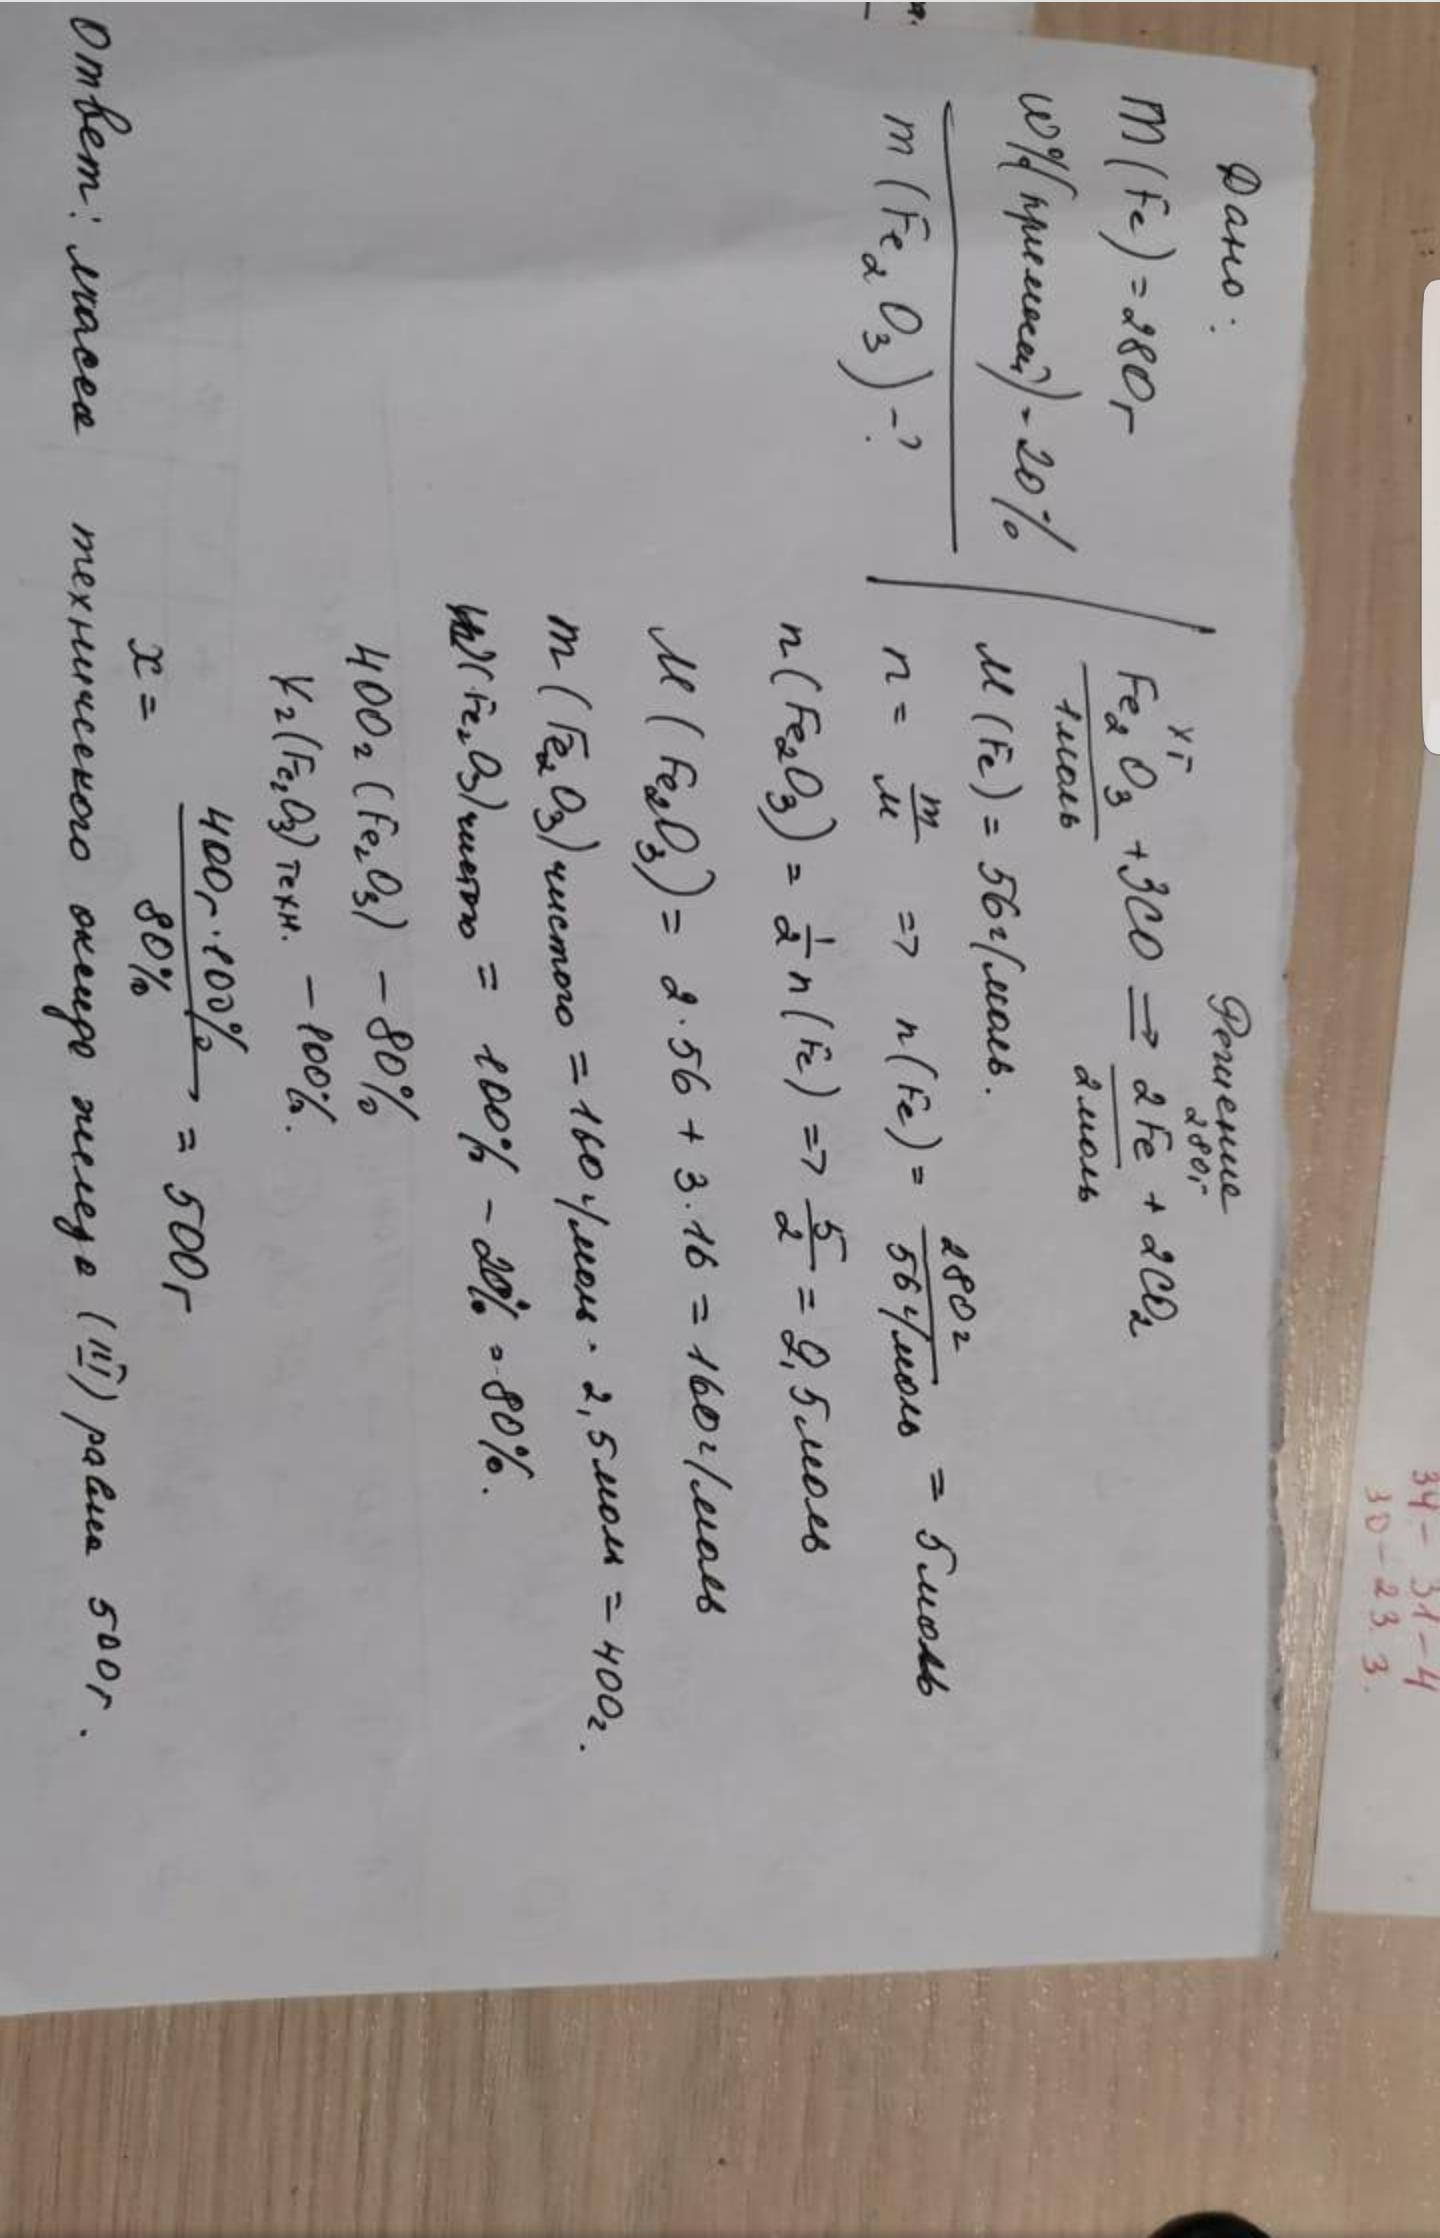 34 - 31 - 4
30 - 23 3.
Дано:
m(Fe) = 280г
w%(примесей) = 20%
m(Fe2O3) - ?
Решение
xг 280г
Fe2O3 + 3CO => 2Fe + 2CO2
1моль 2моль
M(Fe) = 56г/моль.
n = m/M => n(Fe) = 280г/56г/моль = 5моль
n(Fe2O3) = 1/2 n(Fe) => 5/2 = 2,5моль
M(Fe2O3) = 2·56 + 3·16 = 160г/моль
m(Fe2O3)чистого = 160г/моль · 2,5моль = 400г.
w(Fe2O3)чистого = 100% - 20% = 80%.
400г(Fe2O3) - 80%
Xг(Fe2O3)техн. - 100%.
x = 400г·100%/80% = 500г
Ответ: масса технического оксида железа (III) равна 500г.